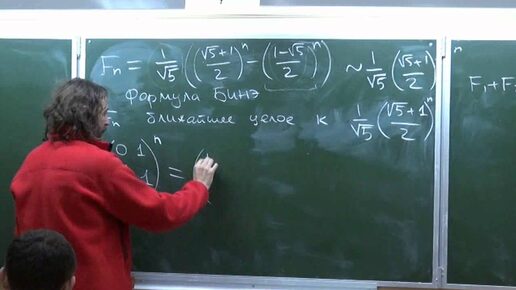 Fₙ = 1/√5 ( ((√5+1)/2)ⁿ − ((1−√5)/2)ⁿ ) ~ 1/√5 ((√5+1)/2)ⁿ
Формула Бинэ
ближайшее целое к 1/√5 ((√5+1)/2)ⁿ
(0 1
1)ⁿ = (
F₁+F